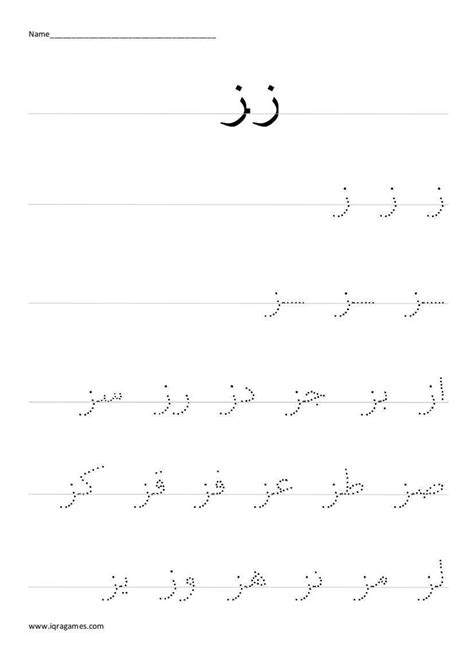 Name____________________________________
ز ـز
ز ز ز
ـز ـز ـز
از بز جز دز رز سز
صز طز عز فز قز كز
لز مز نز هز وز يز
www.iqragames.com